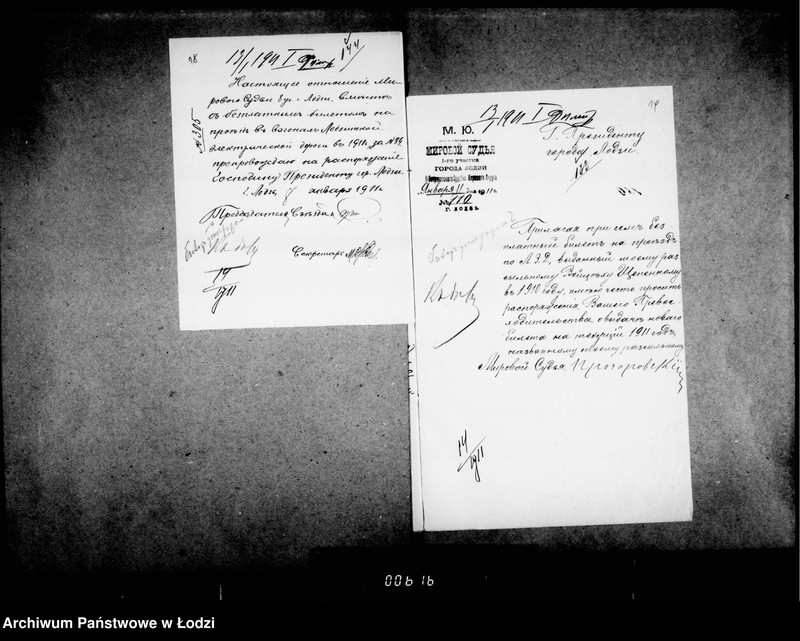 78
13/I 1911 I
144
№ 305
Настоящее отношение Ми-
рового Судьи 8 уч. г. Лодзи, вместе
съ безплатнымъ билетомъ на
проѣздъ въ вагонахъ Лодзинской
электрической дороги въ 1910 г. за №
препровождаю на распоряженіе
Господину Президенту гор. Лодзи.
г. Лодзь, 8 января 1911 г.
Предсѣдатель Съѣзда
Секретарь
14/I 1911
79
13/I 1911 I
М. Ю.
МИРОВОЙ СУДЬЯ
1-го участка
ГОРОДА ЛОДЗИ
Января 11 дня 1911 г.
№ 110
г. ЛОДЗЬ.
Г. Президенту
города Лодзи
Прилагая при семъ без
платный билетъ на проѣздъ
по Л.Э.Д., выданный моему раз
сыльному Войцѣху Щепенному
въ 1910 году, имѣю честь просить
распоряженія Вашего Превос-
ходительства о выдачѣ новаго
билета на текущій 1911 годъ,
названному моему разсыльному
Мировой Судья
14/I 1911
00616
Archiwum Państwowe w Łodzi